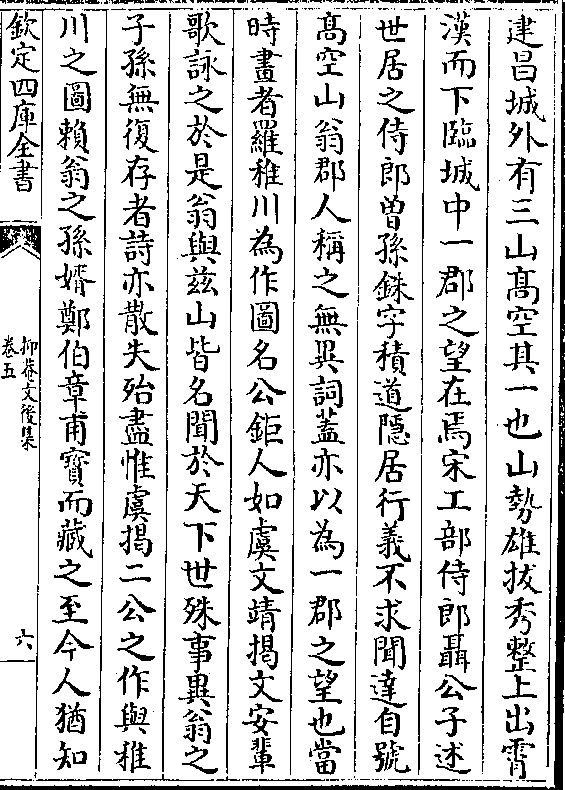 建昌城外有三山髙空其一也山勢雄拔秀整上出霄
漢而下臨城中一郡之望在焉宋工部侍郎聶公子述
世居之侍郎曽孫銖字積道隱居行義不求聞達自號
髙空山翁郡人稱之無異詞葢亦以為一郡之望也當
時畫者羅稚川為作圖名公鉅人如虞文靖揭文安輩
歌詠之於是翁與兹山皆名聞於天下世殊事異翁之
子孫無復存者詩亦散失殆盡惟虞揭二公之作與稚
川之圖賴翁之孫婿鄭伯章甫寶而藏之至今人猶知
欽定四庫全書
抑菴文後集
卷五
六